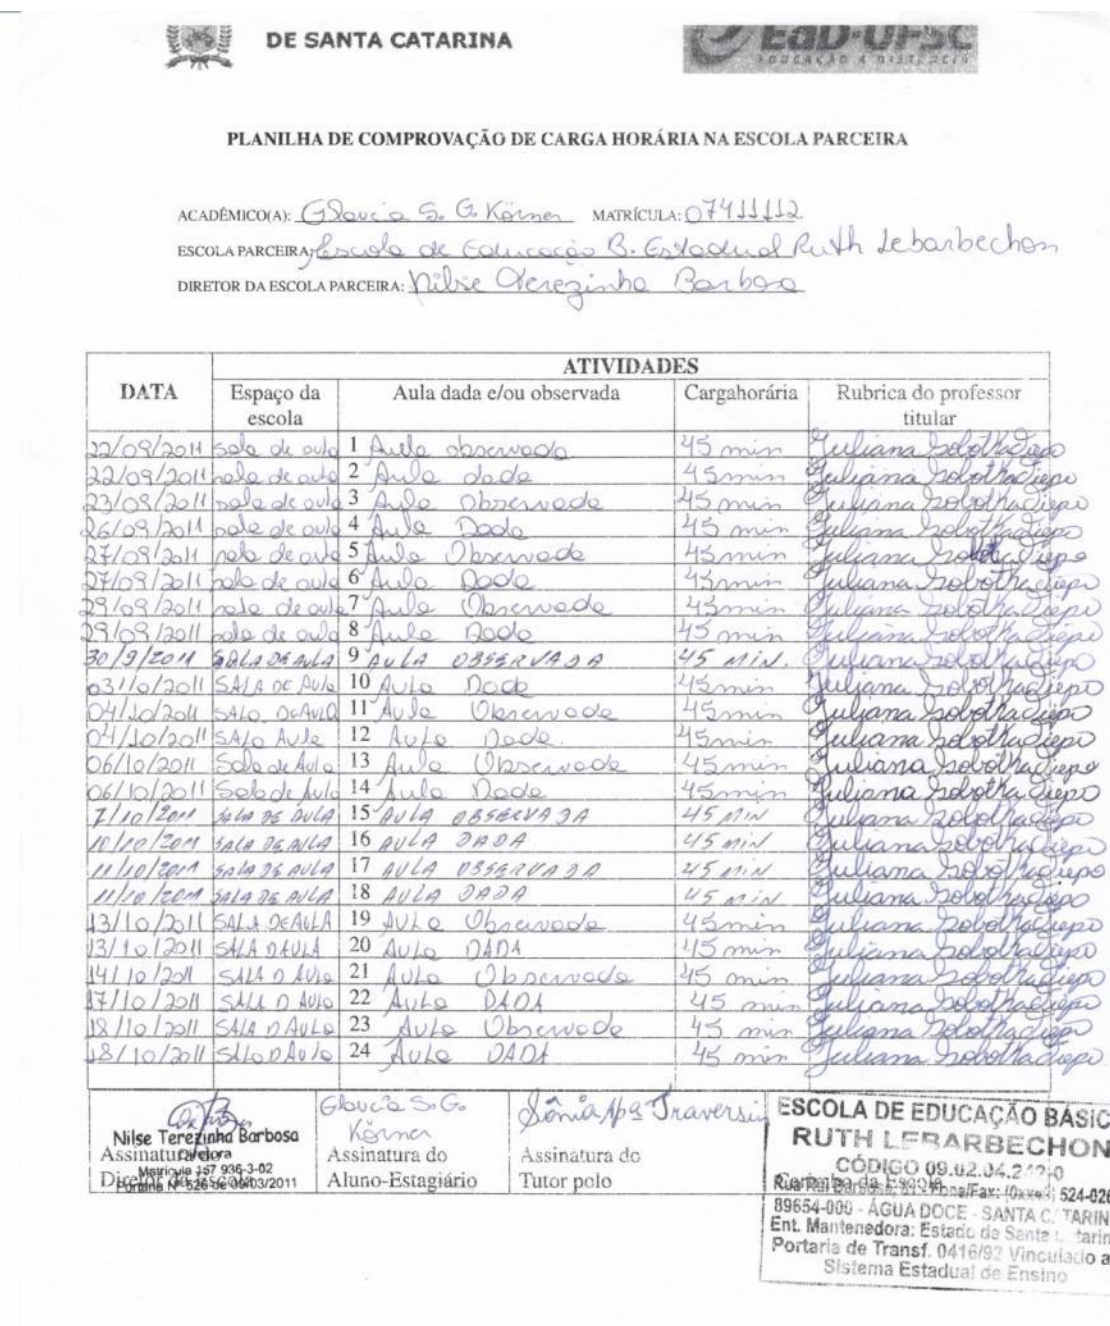 DE SANTA CATARINA
EaD-UFSC
EDUCAÇÃO A DISTÂNCIA
PLANILHA DE COMPROVAÇÃO DE CARGA HORÁRIA NA ESCOLA PARCEIRA
ACADÊMICO(A): Glaucia S. G. Körner MATRÍCULA: 07411112
ESCOLA PARCEIRA: Escola de Educação B. Estadual Ruth Lebarbechon
DIRETOR DA ESCOLA PARCEIRA: Nilse Terezinha Barbosa
ATIVIDADES
DATA Espaço da escola Aula dada e/ou observada Cargahorária Rubrica do professor titular
22/09/2011 sala de aula 1 Aula observada 45 min Juliana
22/09/2011 sala de aula 2 Aula dada 45 min Juliana
23/09/2011 sala de aula 3 Aula Observada 45 min Juliana
26/09/2011 sala de aula 4 Aula Dada 45 min Juliana
27/09/2011 sala de aula 5 Aula Observada 45 min Juliana
27/09/2011 sala de aula 6 Aula Dada 45 min Juliana
29/09/2011 sala de aula 7 Aula Observada 45 min Juliana
29/09/2011 sala de aula 8 Aula Dada 45 min Juliana
30/9/2011 SALA DE AULA 9 AULA OBSERVADA 45 MIN. Juliana
03/10/2011 SALA DE Aula 10 Aula Dada 45 min Juliana
04/10/2011 SALA DE AULA 11 Aula Observada 45 min Juliana
04/10/2011 SALA Aula 12 Aula Dada. 45 min Juliana
06/10/2011 Sala de Aula 13 Aula Observada 45 min Juliana
06/10/2011 Sala de Aula 14 Aula Dada 45 min Juliana
7/10/2011 SALA DE AULA 15 AULA OBSERVADA 45 MIN Juliana
10/10/2011 SALA DE AULA 16 AULA DADA 45 MIN Juliana
11/10/2011 SALA DE AULA 17 AULA OBSERVADA 45 MIN Juliana
11/10/2011 SALA DE AULA 18 AULA DADA 45 MIN Juliana
13/10/2011 SALA DE AULA 19 AULA Observada 45 min Juliana
13/10/2011 SALA D AULA 20 AULA DADA 45 min Juliana
14/10/2011 SALA D AULA 21 AULA Observada 45 min Juliana
17/10/2011 SALA D AULA 22 AULA DADA 45 min Juliana
18/10/2011 SALA D AULA 23 AULA Observada 45 min Juliana
18/10/2011 SALA D AULA 24 AULA DADA 45 min Juliana
Glaucia S. G. Körner
Sônia Apª Traversin
Nilse Terezinha Barbosa
Diretora
Matrícula 157 936-3-02
Portaria Nº 526 de 09/03/2011
Assinatura do
Diretor da escola
Assinatura do
Aluno-Estagiário
Assinatura do
Tutor polo
Carimbo da Escola
ESCOLA DE EDUCAÇÃO BÁSIC
RUTH LEBARBECHON
CÓDIGO 09.02.04.
Fone/Fax: 524-026
89654-000 - ÁGUA DOCE - SANTA CATARIN
Ent. Mantenedora: Estado de Santa Catarin
Portaria de Transf. 0416/92 Vinculado a
Sistema Estadual de Ensino